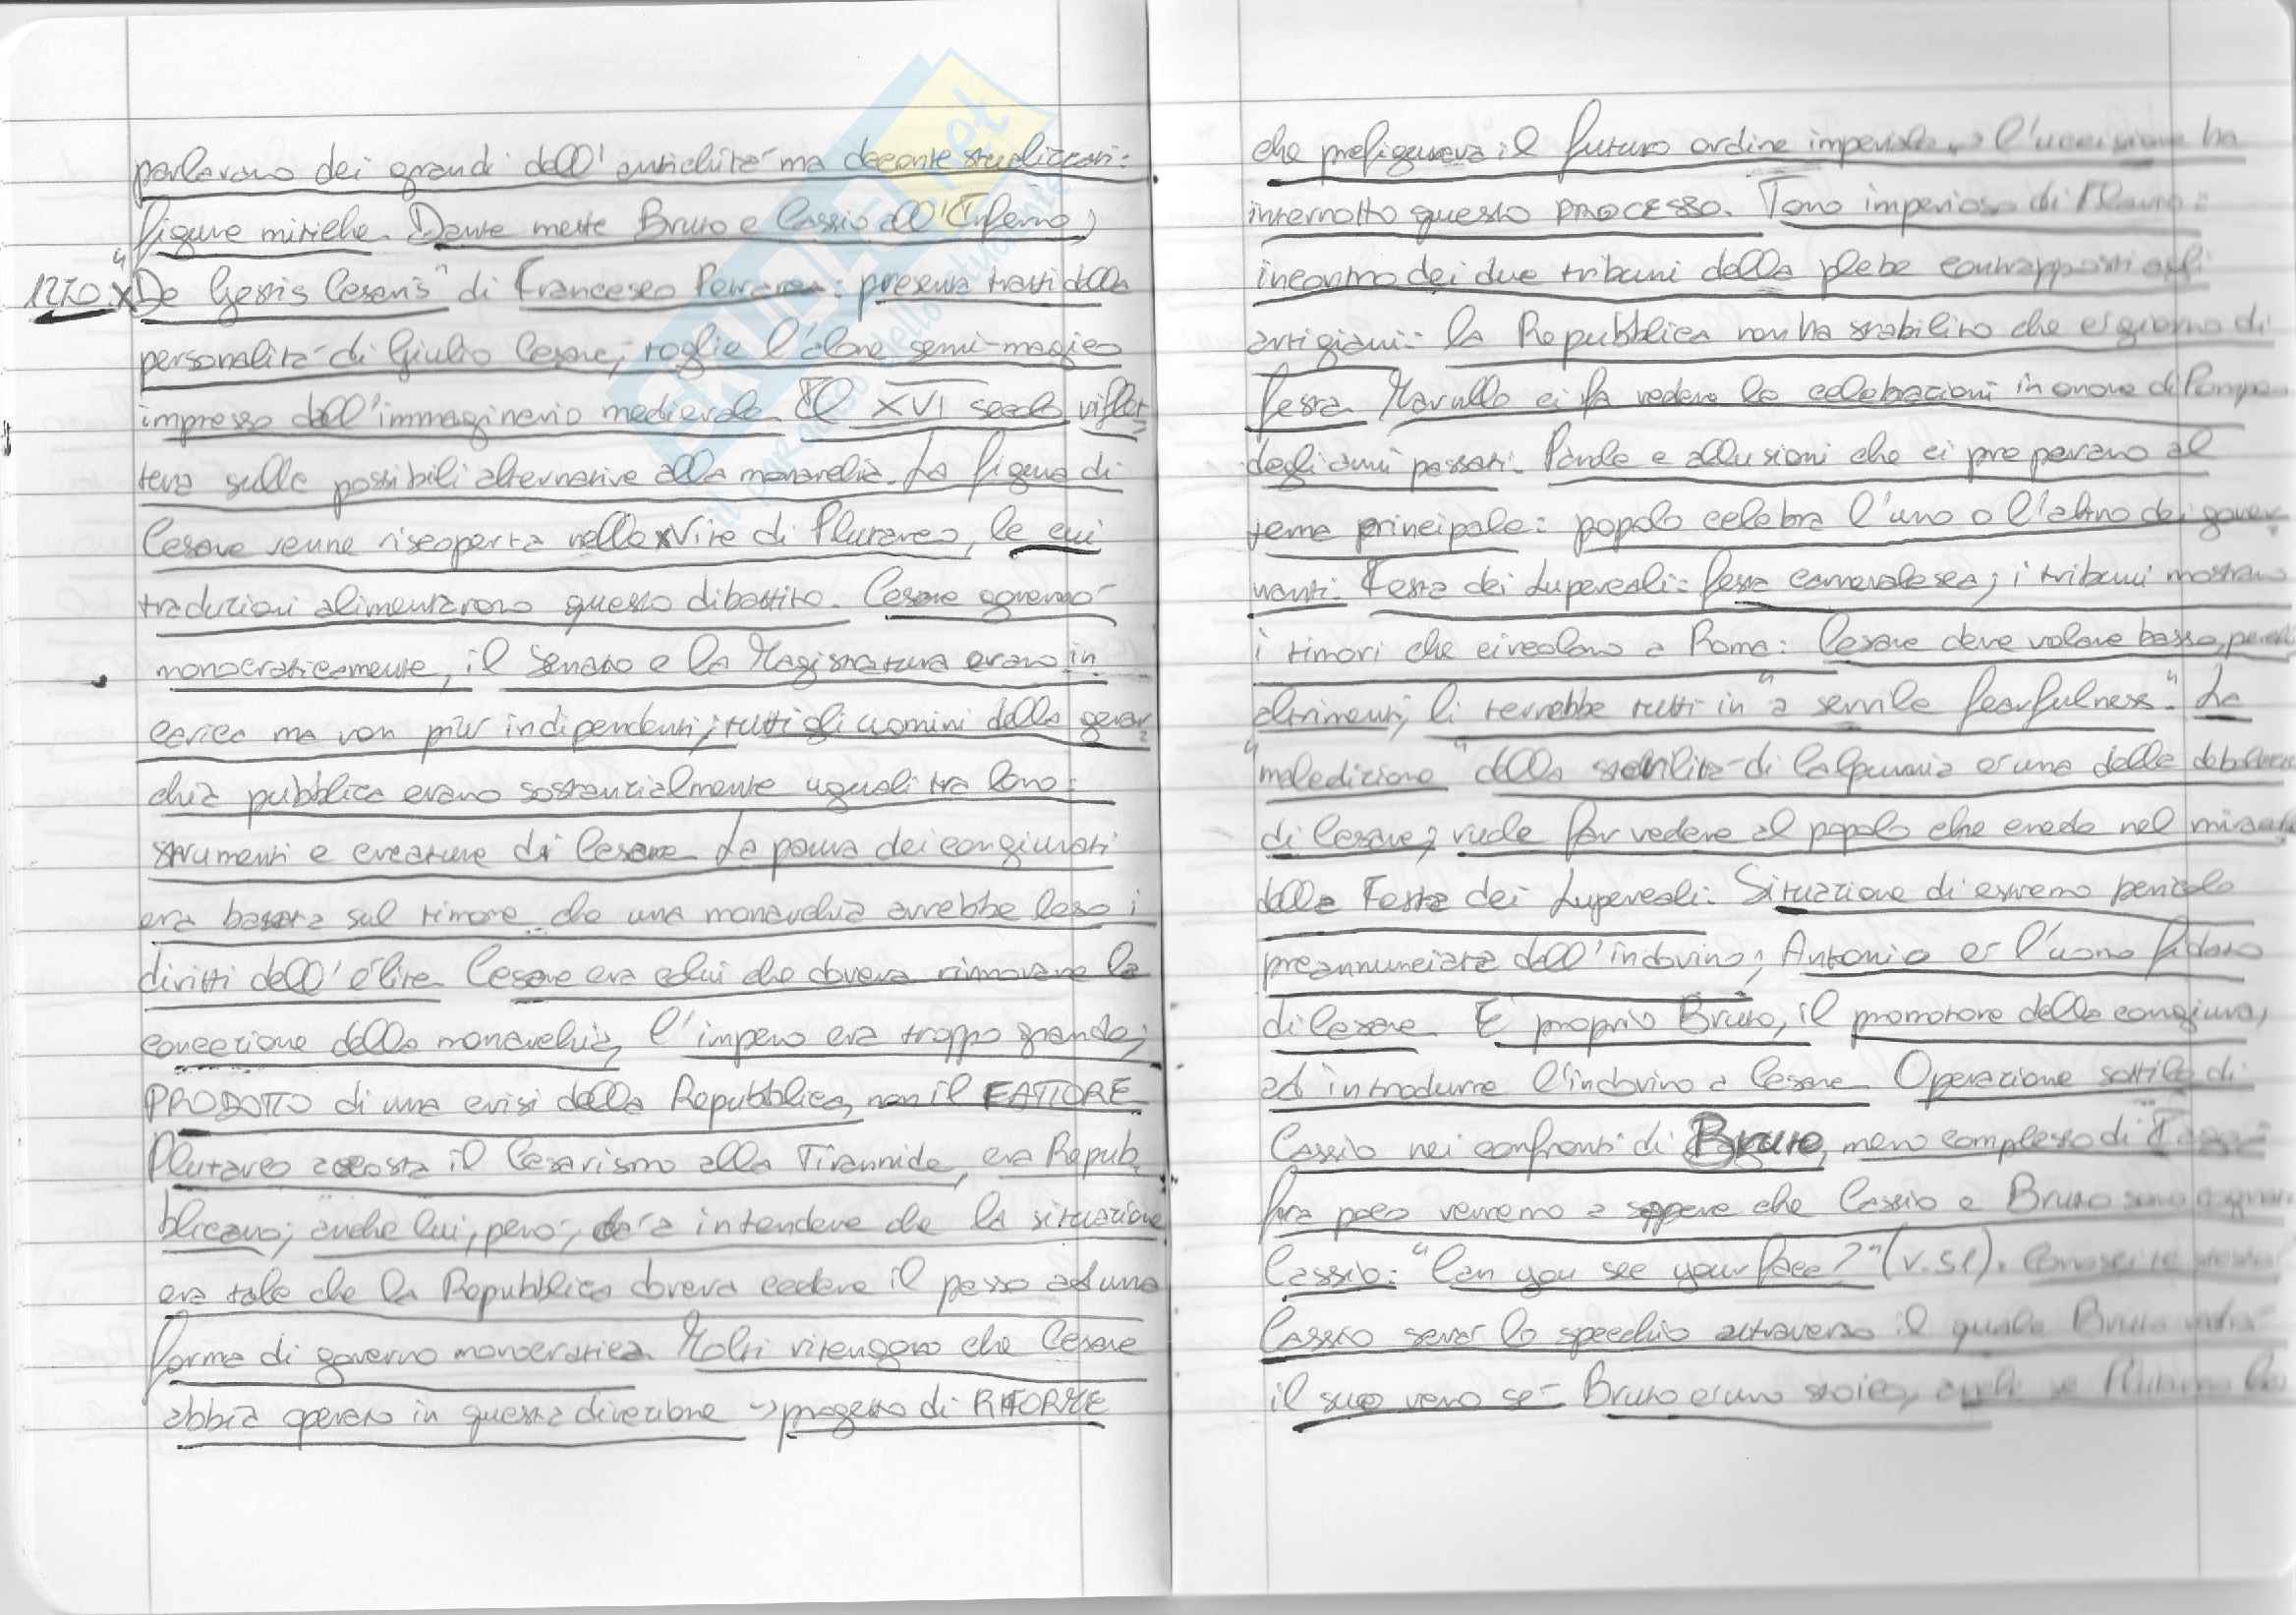 parlavano dei grandi dell'antichità ma
figure mitiche. Dante mette Bruto e Cassio all'Inferno,
1370 x "De Gestis Cesaris" di Francesco Petrarca: presenta tratti della
personalità di Giulio Cesare, toglie l'alone semi-magico
impresso dall'immaginario medievale. Il XVI secolo riflet=
teva sulle possibili alternative alla monarchia. La figura di
Cesare venne riscoperta nelle x Vite di Plutarco, le cui
traduzioni alimentarono questo dibattito. Cesare governò
monocraticamente, il Senato e la Magistratura erano in
carica ma non più indipendenti; tutti gli uomini della gerar=
chia pubblica erano sostanzialmente uguali tra loro:
strumenti e creature di Cesare. La paura dei congiurati
era basata sul timore che una monarchia avrebbe leso i
diritti dell'élite. Cesare era colui che doveva rinnovare la
concezione della monarchia, l'impero era troppo grande;
PRODOTTO di una crisi della Repubblica, non il FATTORE
Plutarco accosta il Cesarismo alla Tirannide, era Repub=
blicano; anche lui, però, dà a intendere che la situazione
era tale che la Repubblica doveva cedere il passo ad una
forma di governo monocratica. Molti ritengono che Cesare
abbia operato in questa direzione -> progetto di RIFORME
che prefigurava il futuro ordine imperiale -> l'uccisione ha
interrotto questo PROCESSO. Tono imperioso di Flavio:
incontro dei due tribuni della plebe contrapposti agli
artigiani: la Repubblica non ha stabilito che è giorno di
festa. Marullo ci fa vedere le celebrazioni in onore di Pompeo
degli anni passati. Parole e allusioni che ci preparano al
tema principale: popolo celebra l'uno o l'altro dei gover=
nanti. Festa dei Lupercali: festa carnevalesca; i tribuni mostrano
i timori che circolano a Roma: Cesare deve volare basso, perché
altrimenti, li terrebbe tutti in "a servile fearfulness". La
"maledizione" della sterilità di Calpurnia è una delle debolezze
di Cesare; vuole far vedere al popolo che crede nel miracolo
della Festa dei Lupercali. Situazione di estremo pericolo
preannunciata dall'indovino; Antonio è l'uomo fidato
di Cesare. È proprio Bruto, il promotore della congiura,
ad introdurre l'indovino a Cesare. Operazione sottile di
Cassio nei confronti di Bruto, meno complesso di
fra poco verremo a sapere che Cassio e Bruto sono cognati
Cassio: "Can you see your face?" (v.51). Conosci te stesso
Cassio sarà lo specchio attraverso il quale Bruto vedrà
il suo vero sé. Bruto è uno stoico, anche se